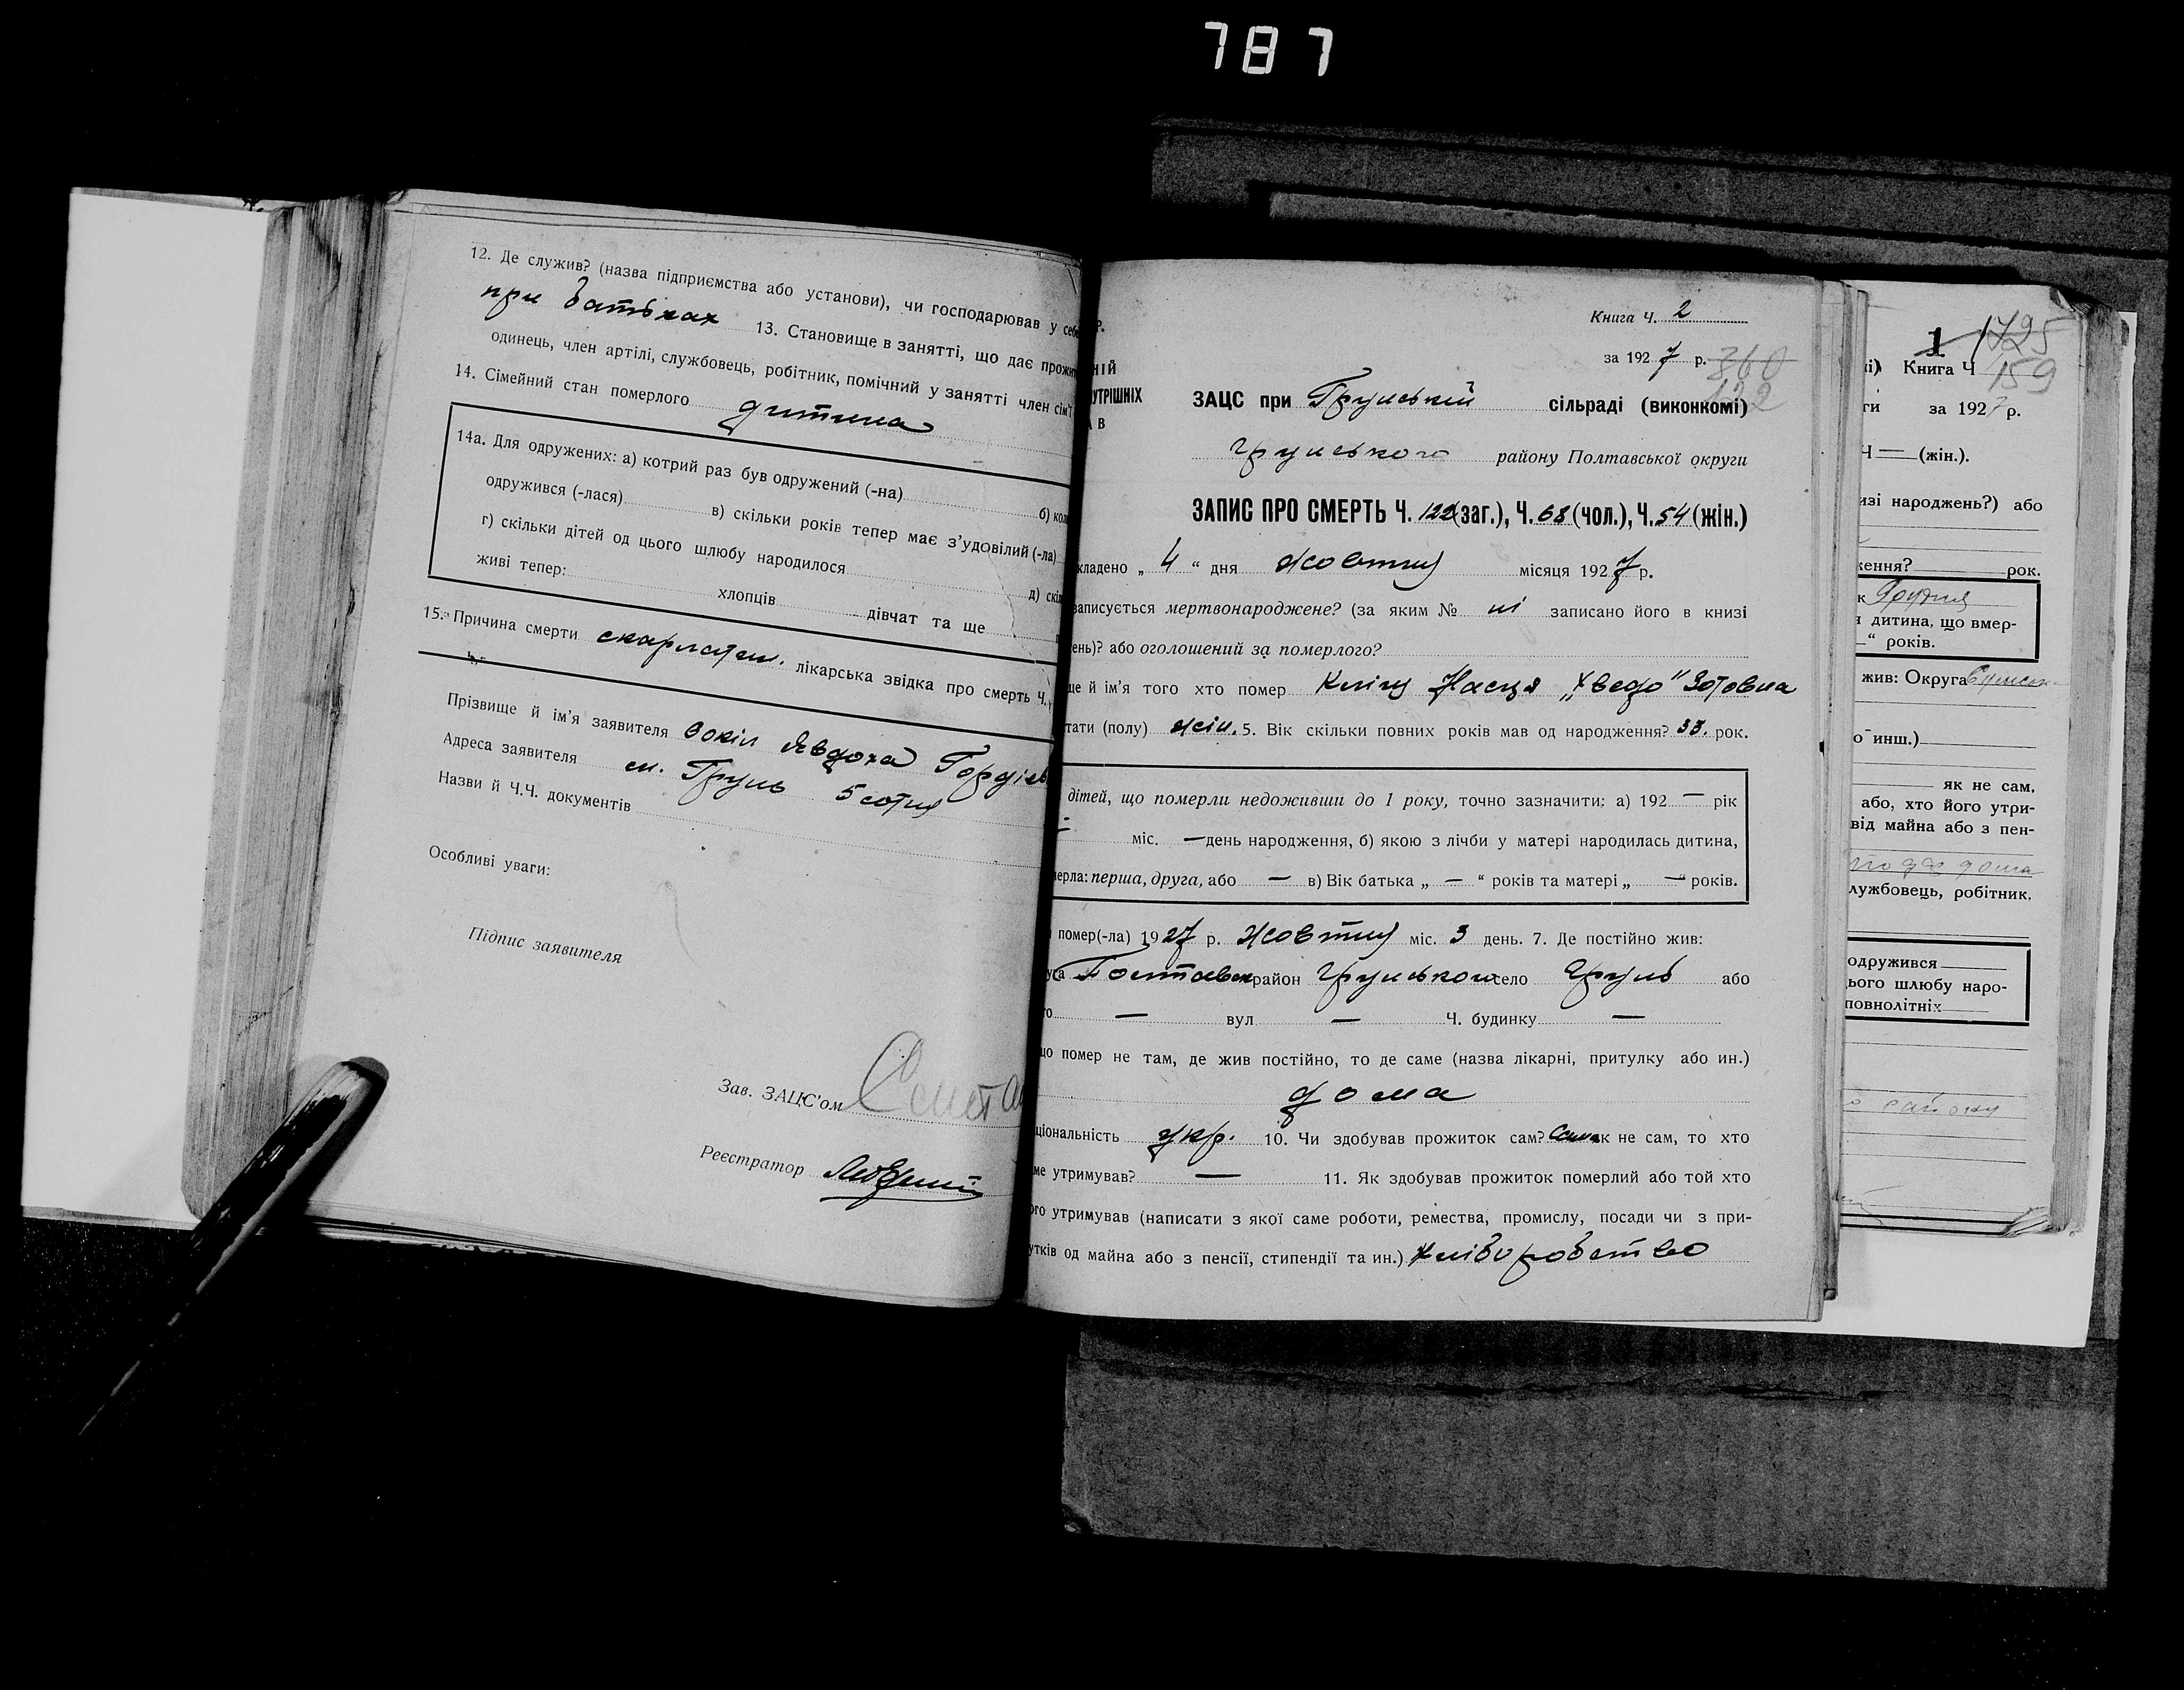 787
12. Де служив? (назва підприємства або установи), чи господарював у себе
при батьках 13. Становище в занятті, що дає прожит
одинець, член артілі, службовець, робітник, помічний у занятті член сім'ї
14. Сімейний стан померлого дитина
14а. Для одружених: а) котрий раз був одружений (-на) б) кол
одружився (-лася) в) скільки років тепер має з'удовілий (-ла)
г) скільки дітей од цього шлюбу народилося д) скіл
живі тепер: хлопців дівчат та ще
15. Причина смерти скарлатин. лікарська звідка про смерть Ч.
Прізвище й ім'я заявителя Сокіл Явдоха Гордіев
Адреса заявителя м. Грунь 5 сотня
Назви й Ч.Ч. документів
Особливі уваги:
Підпис заявителя
Зав. ЗАЦС'ом
Реєстратор
Р.
НІЙ
УТРІШНІХ
А В
Книга Ч. 2
за 1927 р. 360
122
ЗАЦС при Грунській сільраді (виконкомі)
Грунського району Полтавської округи
ЗАПИС ПРО СМЕРТЬ Ч. 122 (заг.), Ч. 68 (чол.), Ч. 54 (жін.)
кладено „ 4 “ дня жовтня місяця 1927 р.
записується мертвонароджене? (за яким № ні записано його в книзі
ень)? або оголошений за померлого?
ще й ім'я того хто помер Настя „Хведо“ Зотовна
тати (полу) жін. 5. Вік скільки повних років мав од народження? 33. рок.
дітей, що померли недоживши до 1 року, точно зазначити: а) 192 — рік
— міс. — день народження, б) якою з лічби у матері народилась дитина,
мерла: перша, друга, або — в) Вік батька „ — “ років та матері „ — “ років.
помер(-ла) 1927 р. жовтня міс. 3 день. 7. Де постійно жив:
уга Полтавськ район Грунського село Грунь або
то — вул — Ч. будинку —
що помер не там, де жив постійно, то де саме (назва лікарні, притулку або ин.)
дома
ціональність укр. 10. Чи здобував прожиток сам? Сама к не сам, то хто
ме утримував? — 11. Як здобував прожиток померлий або той хто
ого утримував (написати з якої саме роботи, ремества, промислу, посади чи з при-
утків од майна або з пенсії, стипендії та ин.) хліборобство
1 1725
159
і) Книга Ч
ги за 1927 р.
Ч — (жін.).
изі народжень?) або
ження? рок.
к Грудня
я дитина, що вмер-
—“ років.
жив: Округа Сумськ
о инш.)
як не сам,
або, хто його утри-
від майна або з пен-
дома
лужбовець, робітник,
одружився
ього шлюбу наро-
повнолітніх
району